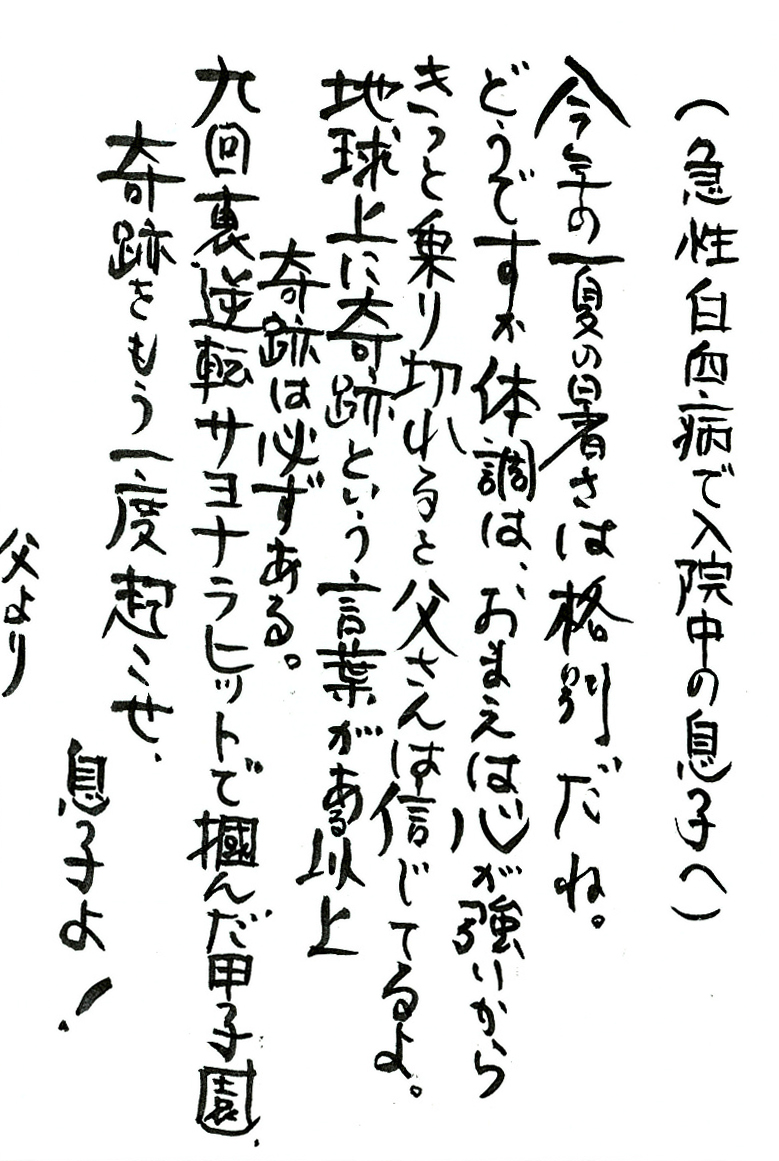 (急性白血病で入院中の息子へ)
今年の夏の暑さは格別だね。
どうですか体調は、おまえは心が強いから
きっと乗り切れると父さんは信じてるよ。
地球上に奇跡という言葉がある以上
奇跡は必ずある。
九回裏逆転サヨナラヒットで掴んだ甲子園、
奇跡をもう一度起こせ、
息子よ!
父より